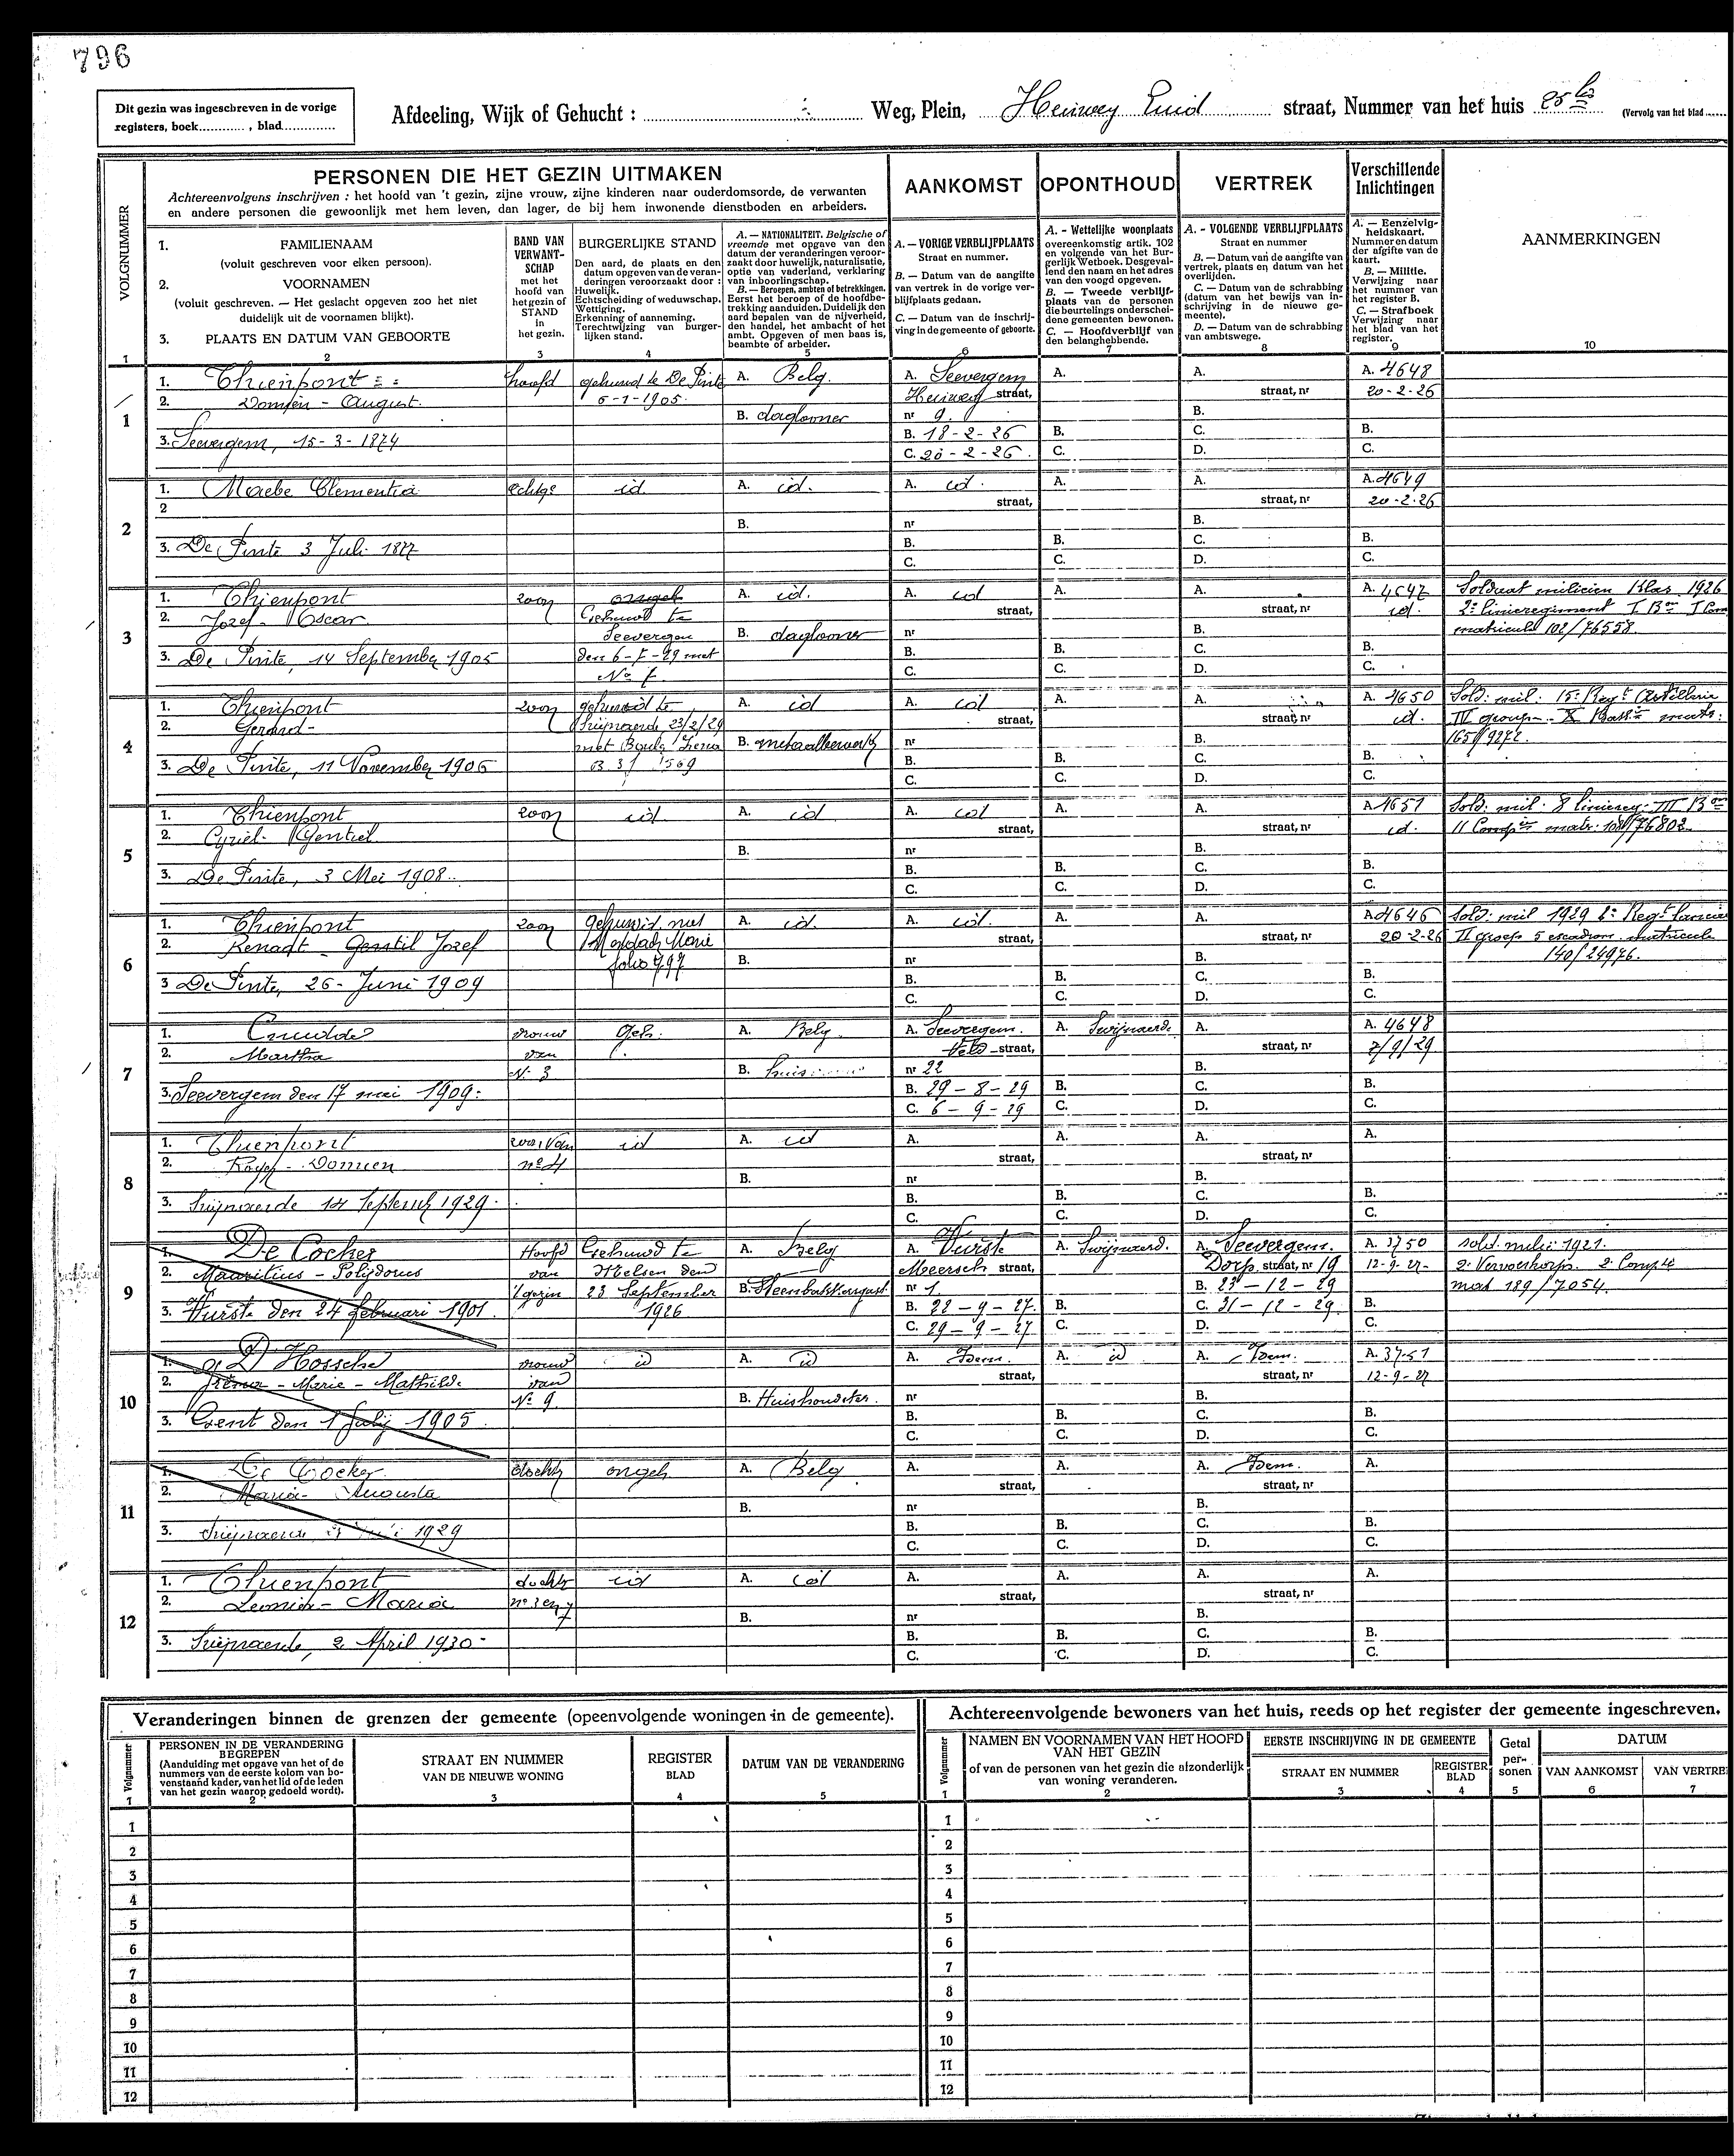 796
Dit gezin was ingeschreven in de vorige
registers, boek............ , blad..............
Afdeeling, Wijk of Gehucht : ........ Weg, Plein, Heirweg Zuid straat, Nummer van het huis 25 bis (Vervolg van het blad ......
VOLGNUMMER
PERSONEN DIE HET GEZIN UITMAKEN
Achtereenvolgens inschrijven : het hoofd van 't gezin, zijne vrouw, zijne kinderen naar ouderdomsorde, de verwanten
en andere personen die gewoonlijk met hem leven, dan lager, de bij hem inwonende dienstboden en arbeiders.
AANKOMST
OPONTHOUD
VERTREK
Verschillende
Inlichtingen
1. FAMILIENAAM
(voluit geschreven voor elken persoon).
2. VOORNAMEN
(voluit geschreven. — Het geslacht opgeven zoo het niet
duidelijk uit de voornamen blijkt).
3. PLAATS EN DATUM VAN GEBOORTE
BAND VAN
VERWANT-
SCHAP
met het
hoofd van
het gezin of
STAND
in
het gezin.
BURGERLIJKE STAND
Den aard, de plaats en den
datum opgeven van de veran-
deringen veroorzaakt door :
Huwelijk.
Echtscheiding of weduwschap.
Wettiging.
Erkenning of aanneming.
Terechtwijzing van burger-
lijken stand.
A. — NATIONALITEIT. Belgische of
vreemde met opgave van den
datum der veranderingen veroor-
zaakt door huwelijk, naturalisatie,
optie van vaderland, verklaring
van inboorlingschap.
B. — Beroepen, ambten of betrekkingen.
Eerst het beroep of de hoofdbe-
trekking aanduiden. Duidelijk den
aard bepalen van de nijverheid,
den handel, het ambacht of het
ambt. Opgeven of men baas is,
beambte of arbeider.
A. — VORIGE VERBLIJFPLAATS
Straat en nummer.
B. — Datum van de aangifte
van vertrek in de vorige ver-
blijfplaats gedaan.
C. — Datum van de inschrij-
ving in de gemeente of geboorte.
A. - Wettelijke woonplaats
overeenkomstig artik. 102
en volgende van het Bur-
gerlijk Wetboek. Desgeval-
lend den naam en het adres
van den voogd opgeven.
B. — Tweede verblijf-
plaats van de personen
die beurtelings onderschei-
dene gemeenten bewonen.
C. — Hoofdverblijf van
den belanghebbende.
A. - VOLGENDE VERBLIJFPLAATS
Straat en nummer
B. — Datum van de aangifte van
vertrek, plaats en datum van het
overlijden.
C. — Datum van de schrabbing
(datum van het bewijs van in-
schrijving in de nieuwe ge-
meente).
D. — Datum van de schrabbing
van ambtswege.
A. — Eenzelvig-
heidskaart.
Nummer en datum
der afgifte van de
kaart.
B. — Militie.
Verwijzing naar
het nummer van
het register B.
C. — Strafboek
Verwijzing naar
het blad van het
register.
AANMERKINGEN
1 2 3 4 5 6 7 8 9 10
1
1. Thienpont hoofd gehuwd te De Pinte A. Belg. A. Seevergem A. A. A. 4648
2. Domien - August. 6-1-1905. Heirweg straat, straat, nr 20-2-26
B. daglooner nr 9. B.
3. Seevergem, 15-3-1874 B. 18-2-26 B. C. B.
C. 20-2-26. C. D. C.
2
1. Maebe Clementia echtge id. A. id. A. id. A. A. A. 4649
2 straat, straat, nr 20-2-26
B. nr B.
3. De Pinte 3 Juli 1877 B. B. C. B.
C. C. D. C.
3
1. Thienpont zoon ongeh A. id. A. id A. A. A. 4647 Soldaat milicien Klas 1926
2. Jozef - Oscar. Gehuwd te straat, straat, nr id. 2e linieregiment I Bon I Com
Seevergem B. daglooner nr B. matricule 102/76558
3. De Pinte, 14 September 1905 den 6-7-29 met B. B. C. B.
No 7. C. C. D. C.
4
1. Thienpont zoon gehuwd te A. id A. id A. A. A. 4650 Sold. mil. 15e Regt Artillerie
2. Gerard - 23/2/29 straat, straat, nr id. III groep - X
met Irena B. metaalbewerk nr B. 165/9272.
3. De Pinte, 11 November 1906 B. B. C. B.
C. C. D. C.
5
1. Thienpont zoon id A. id A. id A. A. A. 4651 Sold. mil. 8 linierey. III Bon
2. Cyriel - Gentiel straat, straat, nr id. 11 Compie matr. /76802
B. nr B.
3. De Pinte, 3 Mei 1908. B. B. C. B.
C. C. D. C.
6
1. Thienpont zoon Gehuwd met A. id. A. id. A. A. A. 4646 Sold. mil 1929 Regt lancie
2. Renaat - Gentil Jozef Marie straat, straat, nr 20-2-26 II groep 5 escadron. matricule
folio 797 B. nr B. 140/24976.
3 De Pinte, 26 - Juni 1909 B. B. C. B.
C. C. D. C.
7
1. vrouw Geh. A. Belg. A. Seevergem. A. Swijnaerde A. A. 4648
2. Martha van Veld straat, straat, nr 7/9/29
N. 3 B. nr 22 B.
3. Seevergem den 17 mei 1909. B. 29-8-29 B. C. B.
C. 6-9-29 C. D. C.
8
1. Thienpont zoon van id A. id A. A. A. A.
2. Domien no 4 straat, straat, nr
B. nr B.
3. Swijnaerde 14 Septemb 1929. B. B. C. B.
C. C. D. C.
9
1. De Cocker Hoofd Gehuwd te A. Belg A. Vurste A. Swijnaerd. A. Seevergem. A. 3750 sold. milic 1921.
2. Mauritius - Polijdorus van Melsen den Meersch straat, Dorp straat, nr 19 12-9-27. 2e Vervoerkorps. 2e Comp
't gezin 23 September B. nr 1. B. 23-12-29 mat 189/7054.
3. Vurste den 24 februari 1901. 1926 B. 22-9-27. B. C. 31-12-29. B.
C. 29-9-27 C. D. C.
10
1. D'Hossche vrouw id A. id A. Idem. A. id A. Idem. A. 3751
2. Iréna - Marie - Mathilde van straat, straat, nr 12-9-27
No 9. B. Huishoudster. nr B.
3. Gent den 1 Julij 1905. B. B. C. B.
C. C. D. C.
11
1. De Cocker dochter ongeh A. Belg A. A. A. Idem. A.
2. Maria - Augusta straat, straat, nr
B. nr B.
3. Swijnaerde 1929 B. B. C. B.
C. C. D. C.
12
1. Thienpont dochter id A. id A. A. A. A.
2. Leonia - Maria no 3 en 7 straat, straat, nr
B. nr B.
3. Swijnaerde, 2 April 1930 - B. B. C. B.
C. C. D. C.
Veranderingen binnen de grenzen der gemeente (opeenvolgende woningen in de gemeente).
Volgnummer
PERSONEN IN DE VERANDERING
BEGREPEN
(Aandulding met opgave van het of de
nummers van de eerste kolom van bo-
venstaand kader, van het lid of de leden
van het gezin waarop gedoeld wordt).
STRAAT EN NUMMER
VAN DE NIEUWE WONING
REGISTER
BLAD
DATUM VAN DE VERANDERING
1 2 3 4 5
1
2
3
4
5
6
7
8
9
10
11
12
Achtereenvolgende bewoners van het huis, reeds op het register der gemeente ingeschreven.
Volgnummer
NAMEN EN VOORNAMEN VAN HET HOOFD
VAN HET GEZIN
of van de personen van het gezin die afzonderlijk
van woning veranderen.
EERSTE INSCHRIJVING IN DE GEMEENTE
STRAAT EN NUMMER
REGISTER
BLAD
Getal
per-
sonen
DATUM
VAN AANKOMST
VAN VERTRE
1 2 3 4 5 6 7
1
2
3
4
5
6
7
8
9
10
11
12